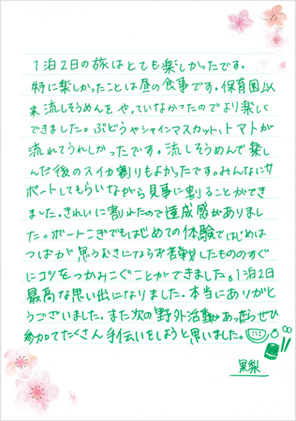 1泊2日の旅はとても楽しかったです。
特に楽しかったことは昼の食事です。保育園以
来流しそうめんをやっていなかったのでより楽しく
できました。ぶどうやシャインマスカット、トマトが
流れてうれしかったです。流しそうめんで楽し
んだ後のスイカ割りもよかったです。みんなにサ
ポートしてもらいながら見事に割ることができ
ました。きれいに割れたので達成感がありまし
た。ボートこぎでもはじめての体験ではじめは
つばが思うむきにならず苦戦したもののすぐ
にコツをつかみこぐことができました。1泊2日
最高な思い出になりました。本当にありがと
うございました。また次の野外活動があったらぜひ
参加してたくさん手伝いをしようと思いました。
果梨